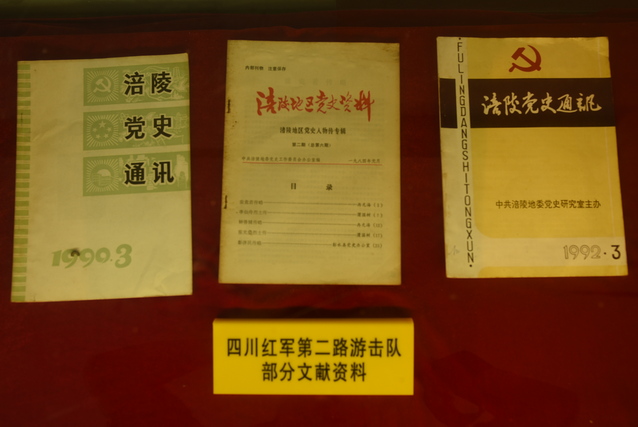 涪陵
党史
通讯
1990.3
内部刊物 注意保存
涪陵地区党史资料
涪陵地区党史人物传专辑
第二期（总第六期）
目录
FULINGDANGSHITONGXUN
涪陵党史通讯
中共涪陵地委党史研究室主办
1992·3
四川红军第二路游击队
部分文献资料